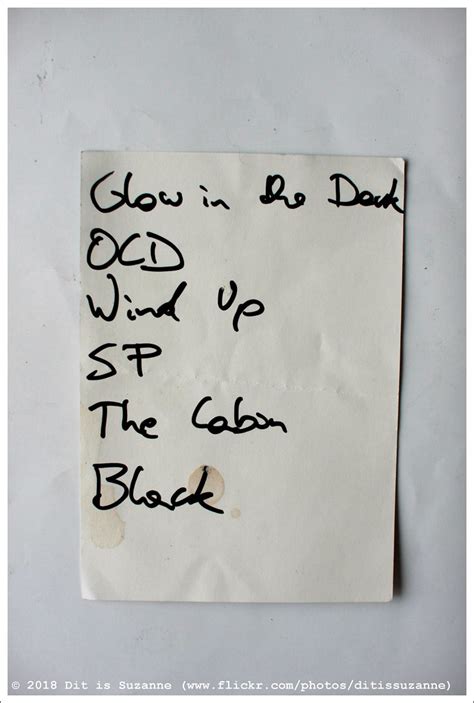 Glow in the Dark
OCD
Wind Up
SP
The Cabin
Black
© 2018 Dit is Suzanne (www.flickr.com/photos/ditissuzanne)